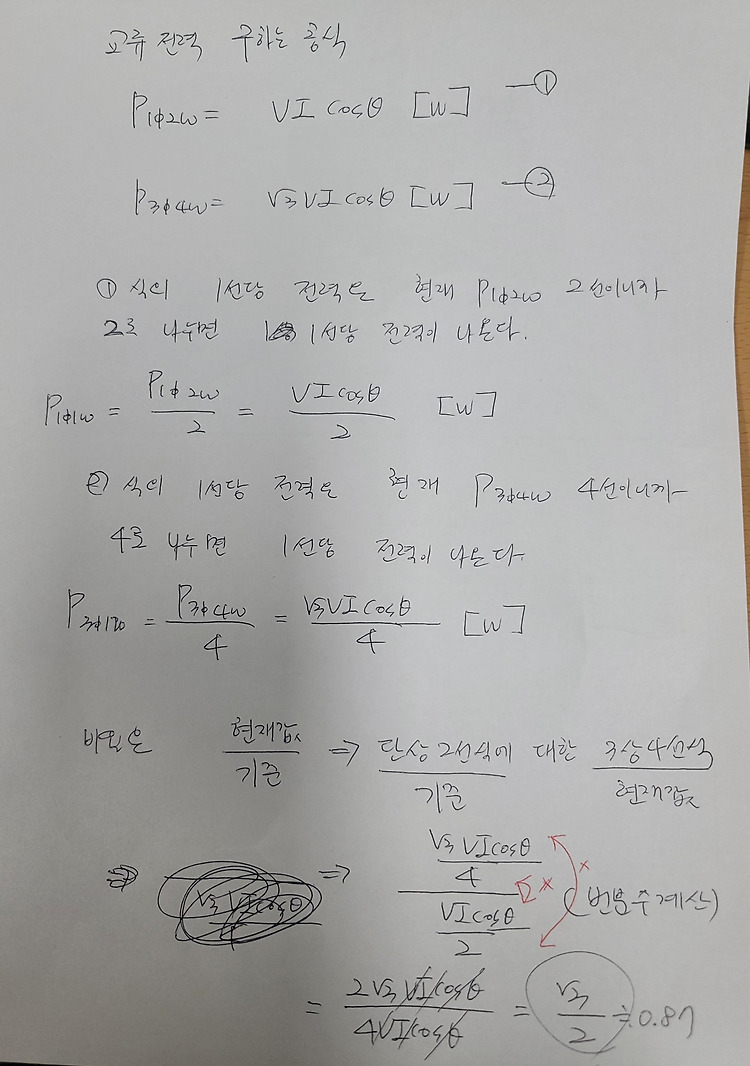 교류 전력 구하는 공식
P1ϕ2w = VI cosθ [W] — ①
P3ϕ4w = √3 VI cosθ [W] — ②
① 식의 1선당 전력은 현재 P1ϕ2w 2선이니까
2로 나누면 1선당 전력이 나온다.
P1ϕ1w = P1ϕ2w / 2 = VI cosθ / 2 [W]
② 식의 1선당 전력은 현재 P3ϕ4w 4선이니까
4로 나누면 1선당 전력이 나온다.
P3ϕ1w = P3ϕ4w / 4 = √3 VI cosθ / 4 [W]
비율은 현재값 / 기준 ⇒ 단상 2선식에 / 기준 대한 3상4선식 / 현재값
⇒ ⇒ (√3 VI cosθ / 4) / (VI cosθ / 2) × × (번분수 계산)
= 2√3 VI cosθ / 4VI cosθ = √3 / 2 ≒ 0.87